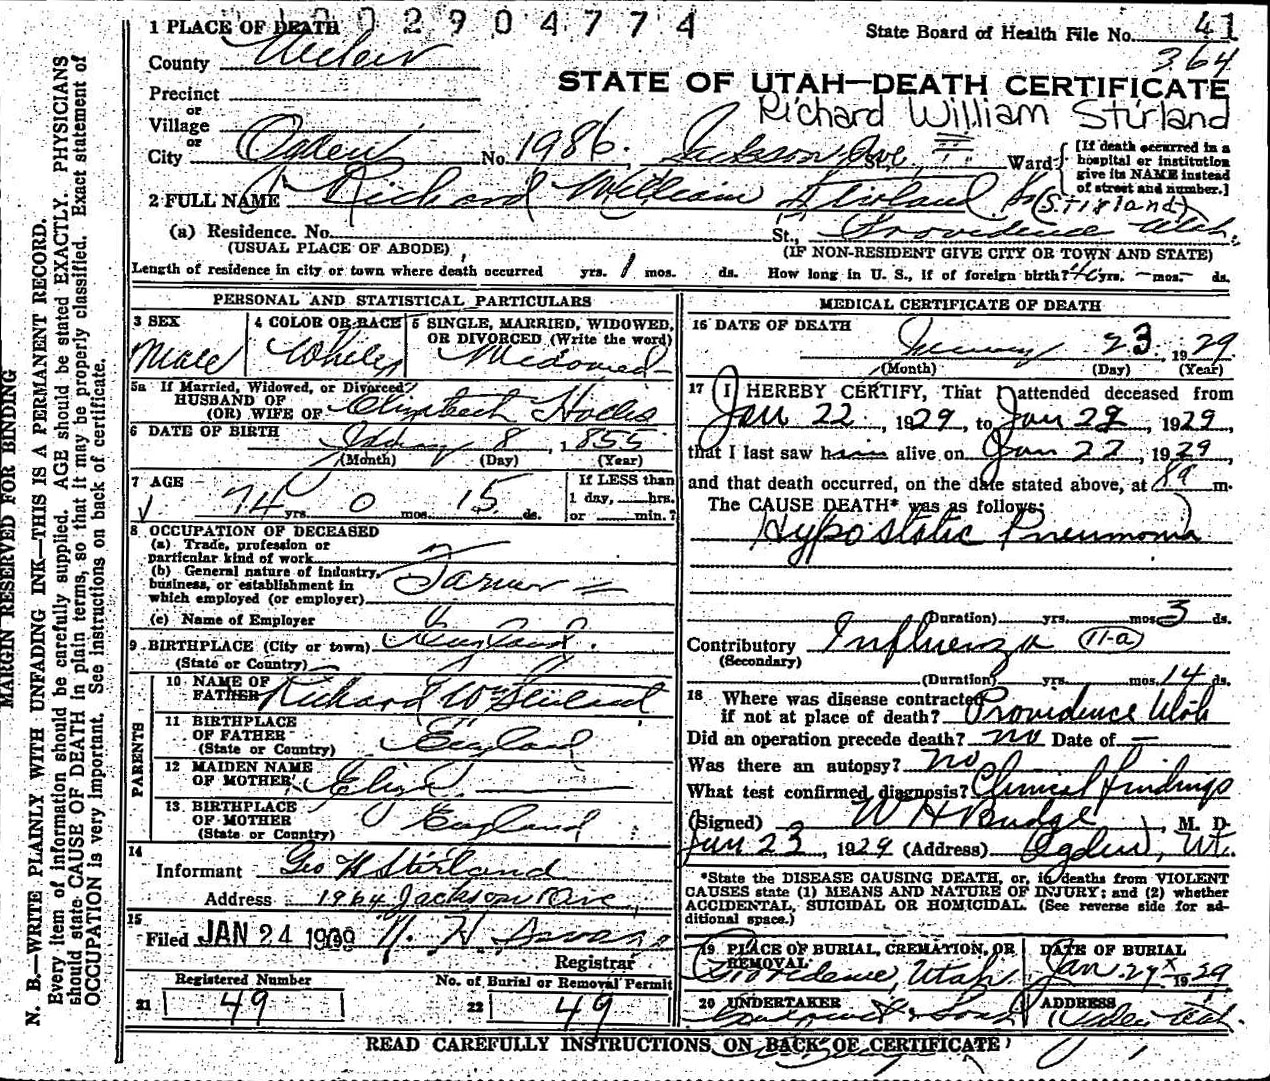 1002904774
1 PLACE OF DEATH
State Board of Health File No. 41
364
County Weber
STATE OF UTAH—DEATH CERTIFICATE
Precinct
or
Village
or
Richard William Stirland
City Ogden No. 1986. Jackson Ave. St., Ward
[If death occurred in a hospital or institution give its NAME instead of street and number.]
2 FULL NAME Richard William Stirland Sr
(Stirland)
(a) Residence. No. St., Providence Utah.
(USUAL PLACE OF ABODE)
(IF NON-RESIDENT GIVE CITY OR TOWN AND STATE)
Length of residence in city or town where death occurred yrs. 1 mos. ds. How long in U. S., if of foreign birth? yrs. — mos. — ds.
PERSONAL AND STATISTICAL PARTICULARS
3 SEX
Male
4 COLOR OR RACE
White
5 SINGLE, MARRIED, WIDOWED, OR DIVORCED (Write the word)
Widowed
5a If Married, Widowed, or Divorced
HUSBAND OF
(OR) WIFE OF Elizabeth
6 DATE OF BIRTH 8, 1855
(Month) (Day) (Year)
7 AGE
74 yrs. 0 mos. 15 ds.
If LESS than
1 day, hrs.
or min.?
8 OCCUPATION OF DECEASED
(a) Trade, profession or
particular kind of work
(b) General nature of industry,
business, or establishment in
which employed (or employer)
Farmer
(c) Name of Employer
9 BIRTHPLACE (City or town) England.
(State or Country)
PARENTS
10 NAME OF
FATHER Richard Wm Stirland
11 BIRTHPLACE
OF FATHER
(State or Country) England
12 MAIDEN NAME
OF MOTHER Eliza
13 BIRTHPLACE
OF MOTHER
(State or Country) England
14
Informant Geo H Stirland
Address 1964 Jackson Ave,
15
Filed JAN 24 19
Registrar
Registered Number
21 49
No. of Burial or Removal Permit
22 49
MEDICAL CERTIFICATE OF DEATH
16 DATE OF DEATH
January 23, 1929
(Month) (Day) (Year)
17 I HEREBY CERTIFY, That I attended deceased from
Jan 22, 1929, to Jan 22, 1929,
that I last saw him alive on Jan 22, 1929,
and that death occurred, on the date stated above, at 8a m.
The CAUSE DEATH* was as follows:
Hypostatic Pneumonia
(Duration) yrs. mos. 3 ds.
Contributory Influenza 11-a
(Secondary)
(Duration) yrs. mos. 14 ds.
18 Where was disease contracted
if not at place of death? Providence Utah
Did an operation precede death? no Date of —
Was there an autopsy? no
What test confirmed diagnosis? Clinical findings
(Signed) W H Budge, M. D.
Jan 23, 1929 (Address) Ogden, Ut.
*State the DISEASE CAUSING DEATH, or, in deaths from VIOLENT
CAUSES state (1) MEANS AND NATURE OF INJURY; and (2) whether
ACCIDENTAL, SUICIDAL OR HOMICIDAL. (See reverse side for ad-
ditional space.)
19 PLACE OF BURIAL, CREMATION, OR
REMOVAL
Providence, Utah
DATE OF BURIAL
Jan 1929
20 UNDERTAKER
& Sons
ADDRESS
Ogden Utah.
READ CAREFULLY INSTRUCTIONS ON BACK OF CERTIFICATE
MARGIN RESERVED FOR BINDING
N. B.—WRITE PLAINLY WITH UNFADING INK—THIS IS A PERMANENT RECORD.
Every item of information should be carefully supplied. AGE should be stated EXACTLY. PHYSICIANS
should state CAUSE OF DEATH in plain terms, so that it may be properly classified. Exact statement of
OCCUPATION is very important. See instructions on back of certificate.